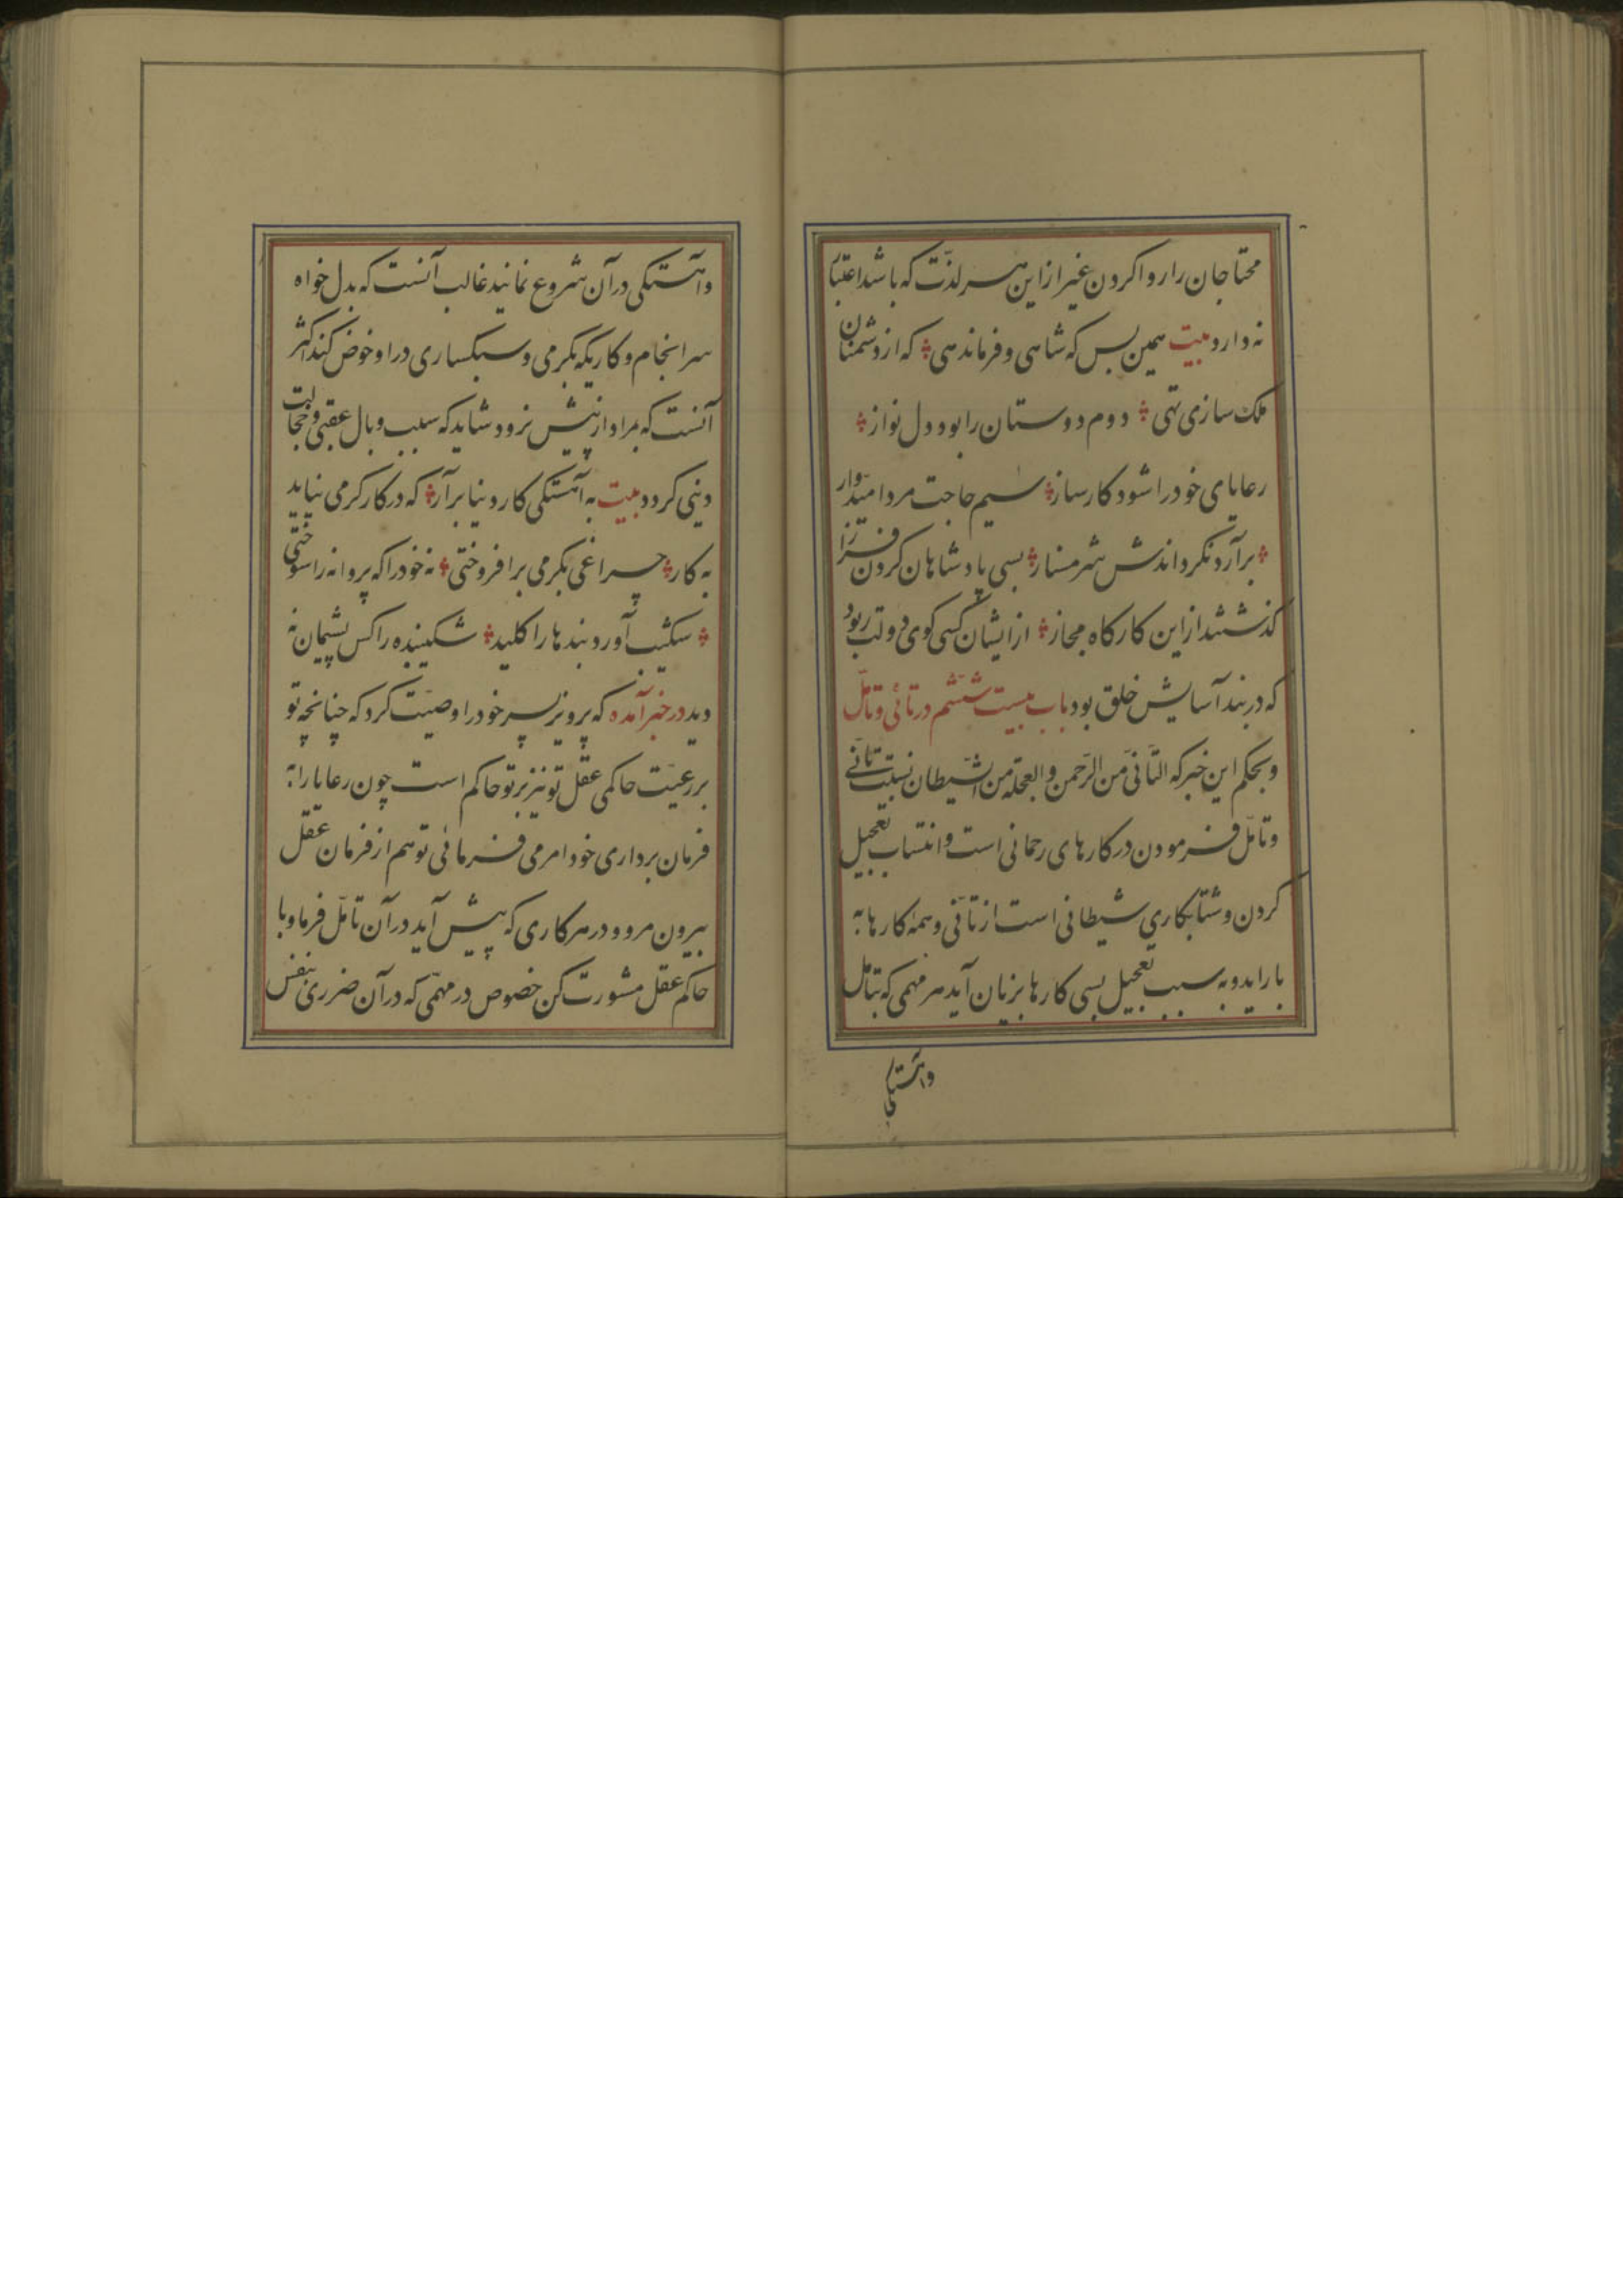 محتاجان را روا کردن غیر از این هر لذت که باشد اعتبار
نه دارد بیت همین بس که شاهی و فرماندهی که از دشمنان
ملک سازی تهی دوم دوستان را بود دل نواز
رعایای خود را شود کارساز سیم حاجت مرد امیدوار
برآرد نکرداندش شرمسار بسی پادشاهان کردن فراز
کذشتند از این کارکاه مجاز از ایشان کسی کوی دولت ربود
که در بند آسایش خلق بود باب بیست ششم در تانی و تامل
و بحکم این خبر که التانی من الرحمن والعجلة من الشیطان نسبت تانی
و تامل فرمودن در کارهای رحمانی است و انتساب تعجیل
کردن و شتابکاری شیطانی است از تانی و همه کارها به
با راید و به سبب تعجیل بسی کارها بزیان آید هر مهمی که بتامل
واهستکی
واهستکی در آن شروع نمانید غالب آنست که بدل خواه
سرانجام و کاریکه بکرمی و سبکساری در او خوض کند اکثر
آنست که مراد از پیش نرود شاید که سبب وبال عقبی و خجالت
دینی کردد بیت به آهستکی کار دنیا برآر که در کار کرمی نیاید
به کار چراغی بکرمی برافروختی نه خود را که پروانه را سوختی
سکیب آورد بندها را کلید شکیبنده را کس پشیمان نه
دید در خبر آمده که پرویز پسر خود را وصیت کرد که چنانچه تو
بر رعیت حاکمی عقل تو نیز بر تو حاکم است چون رعایا را به
فرمان برداری خود امر می فرمائی تو هم از فرمان عقل
بیرون مرو و در هر کاری که پیش آید در آن تامل فرما و با
حاکم عقل مشورت کن خصوص در مهمی که در آن ضرری بنفس